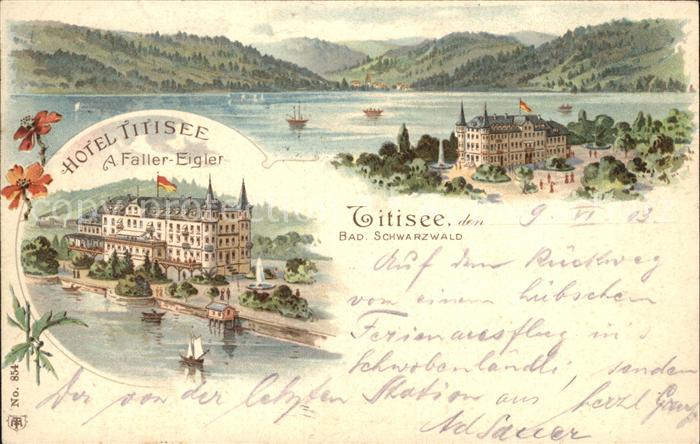 HOTEL TITISEE
A. Faller-Eigler
Titisee, den 9 VI 03.
BAD. SCHWARZWALD
Auf dem Rückweg
von einem hübschen
Ferienausflug in's
Schwobenländli senden
Der von der letzten Station aus herzl Gruß
No. 854